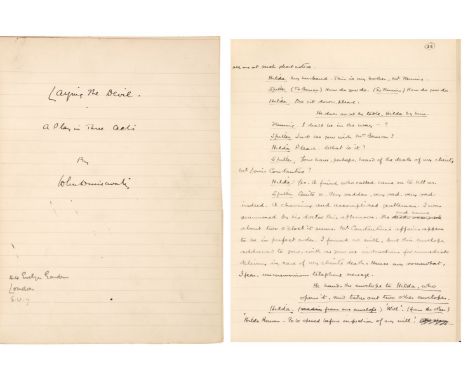 Laying The Devil.
A Play in Three Acts
By
John Drinkwater
Gardens
London
S.W.7
22
me at such short notice.
Hilda. My husband. This is my brother, Mr
Spiller (To ) How do you do. (To ) How do you do.
Hilda. Do sit down, please.
He does so at the table, Hilda by him
I shan't be in the way — ?
Spiller. Just as you wish Mr
Hilda. Please. What is it?
Spiller. You have, perhaps, heard of the death of my client,
Mr Louis Constantine?
Hilda. Yes. A friend who called came in to tell us.
Spiller. Quite so. Very sudden, very sad, very sad
indeed. A charming and accomplished gentleman. I was
summoned by his doctor this afternoon. He
about two o'clock it seems. Mr Constantine's affairs appear
to be in perfect order. I found his will, but this envelope
addressed to you, with instructions for immediate
delivery in case of my client's death. Hence my somewhat,
I fear, telephone message.
He hands the envelope to Hilda, who
opens it, and takes out two other envelopes.
Hilda. (reading from one envelope) 'Will'. (from the other)
'Hilda - To be opened before inspection of my will'.